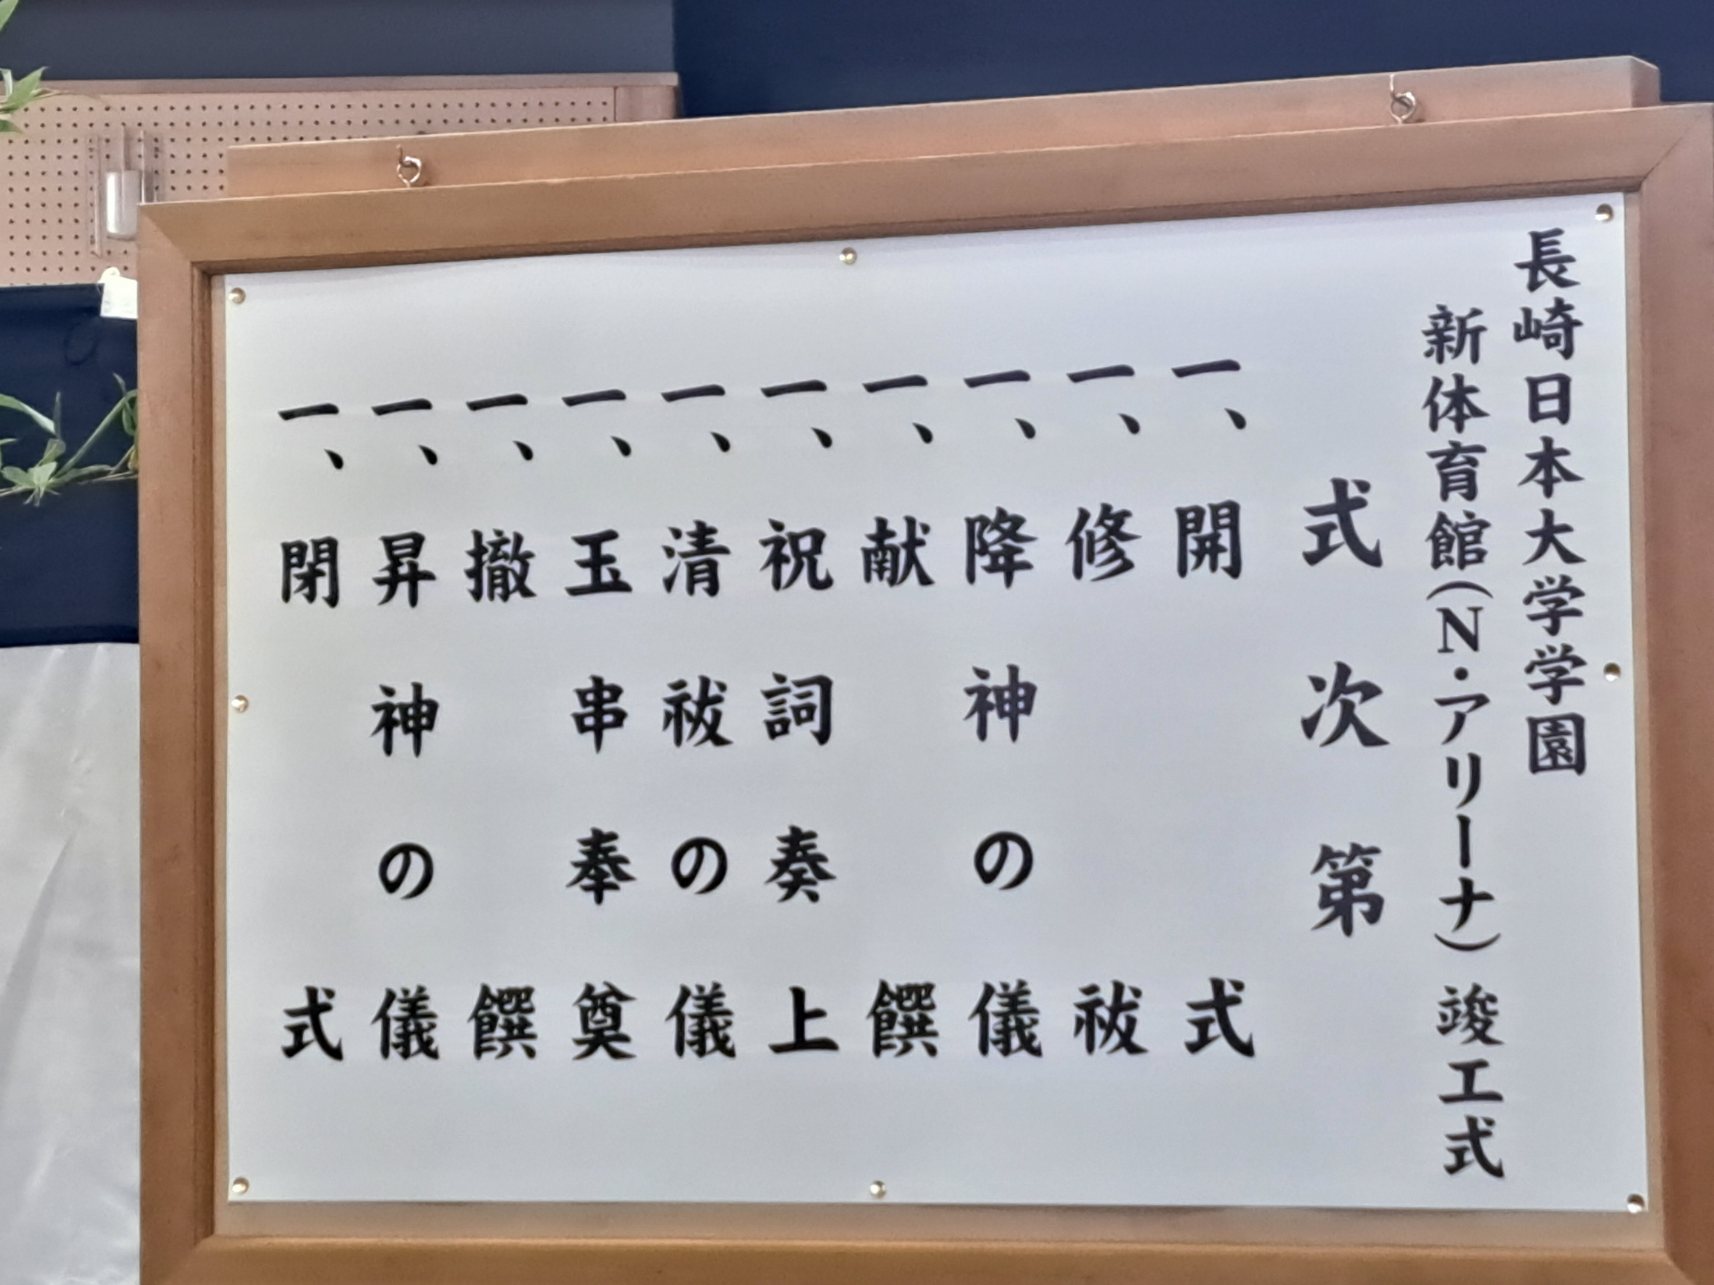 長崎日本大学学園
新体育館(N・アリーナ) 竣工式
式次第
一、開式
一、修祓
一、降神の儀
一、献饌
一、祝詞奏上
一、清祓の儀
一、玉串奉奠
一、撤饌
一、昇神の儀
一、閉式